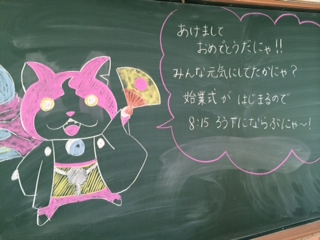 あけまして
おめでとうだにゃ!!
みんな元気にしてたかにゃ?
始業式が はじまるので
8:15 ろう下にならぶにゃ〜!